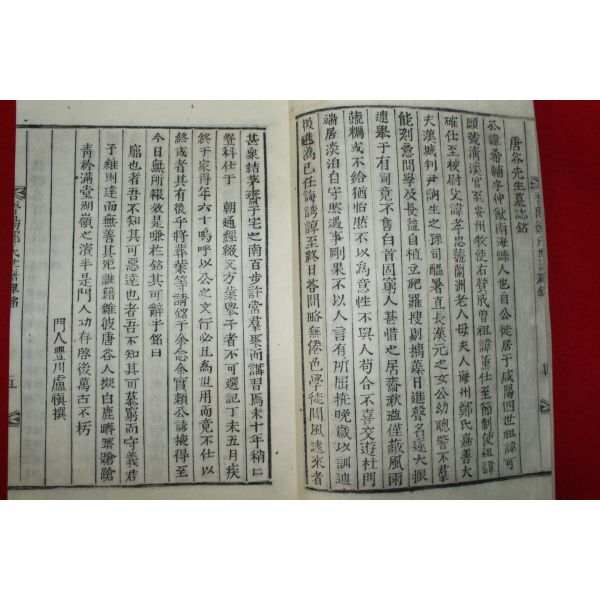 唐谷先生墓誌銘
公諱希輔字仲猷南海縣人也自公徙居于咸陽四世祖諱可
願號濟漢官至安州牧使右贊成曾祖諱董仕至節制使祖諱
確仕至校尉父諱孝忠號蘭洲老人母夫人海州鄭氏嘉善大
夫漢城判尹詗生之孫司醞署直長漢元之女公幼聰警不羣
能刻意問學及長益自植立肥羅搜剔摛藻日進聲名遂大振
連擧于有司竟不售白首固窮人甚惜之居齋湫溢僅蔽風雨
蔬糲或不給猶怡然不以為意性不與人苟合不喜交遊杜門
端居淡泊自守然遇事剛果不以人言有所屈撓晩歲以訓迪
後進為己任誨誘諄至終日答問略無倦色學徒聞風遠來者
甚衆結茅齋于宅之南百步許常羣聚而講習焉未十年稍
登科仕于 朝通經綴文方藥擧子者不可選記丁未五月疾
終于家得年六十嗚呼以公之文行必且為世用而竟不仕以
終或者其有後乎將葬葉等請銘于余念余實頼公誘掖得至
今日無所報效是嗛於銘其可辭乎銘曰
窮也者吾不知其可惡達也者吾不知其可慕窮而守義君
子雖則達而無善其死誰籍雖彼唐谷人擬白鹿
青衿滿堂湖嶺之濱半是門人功存啓後萬古不朽
門人豐川盧禛撰